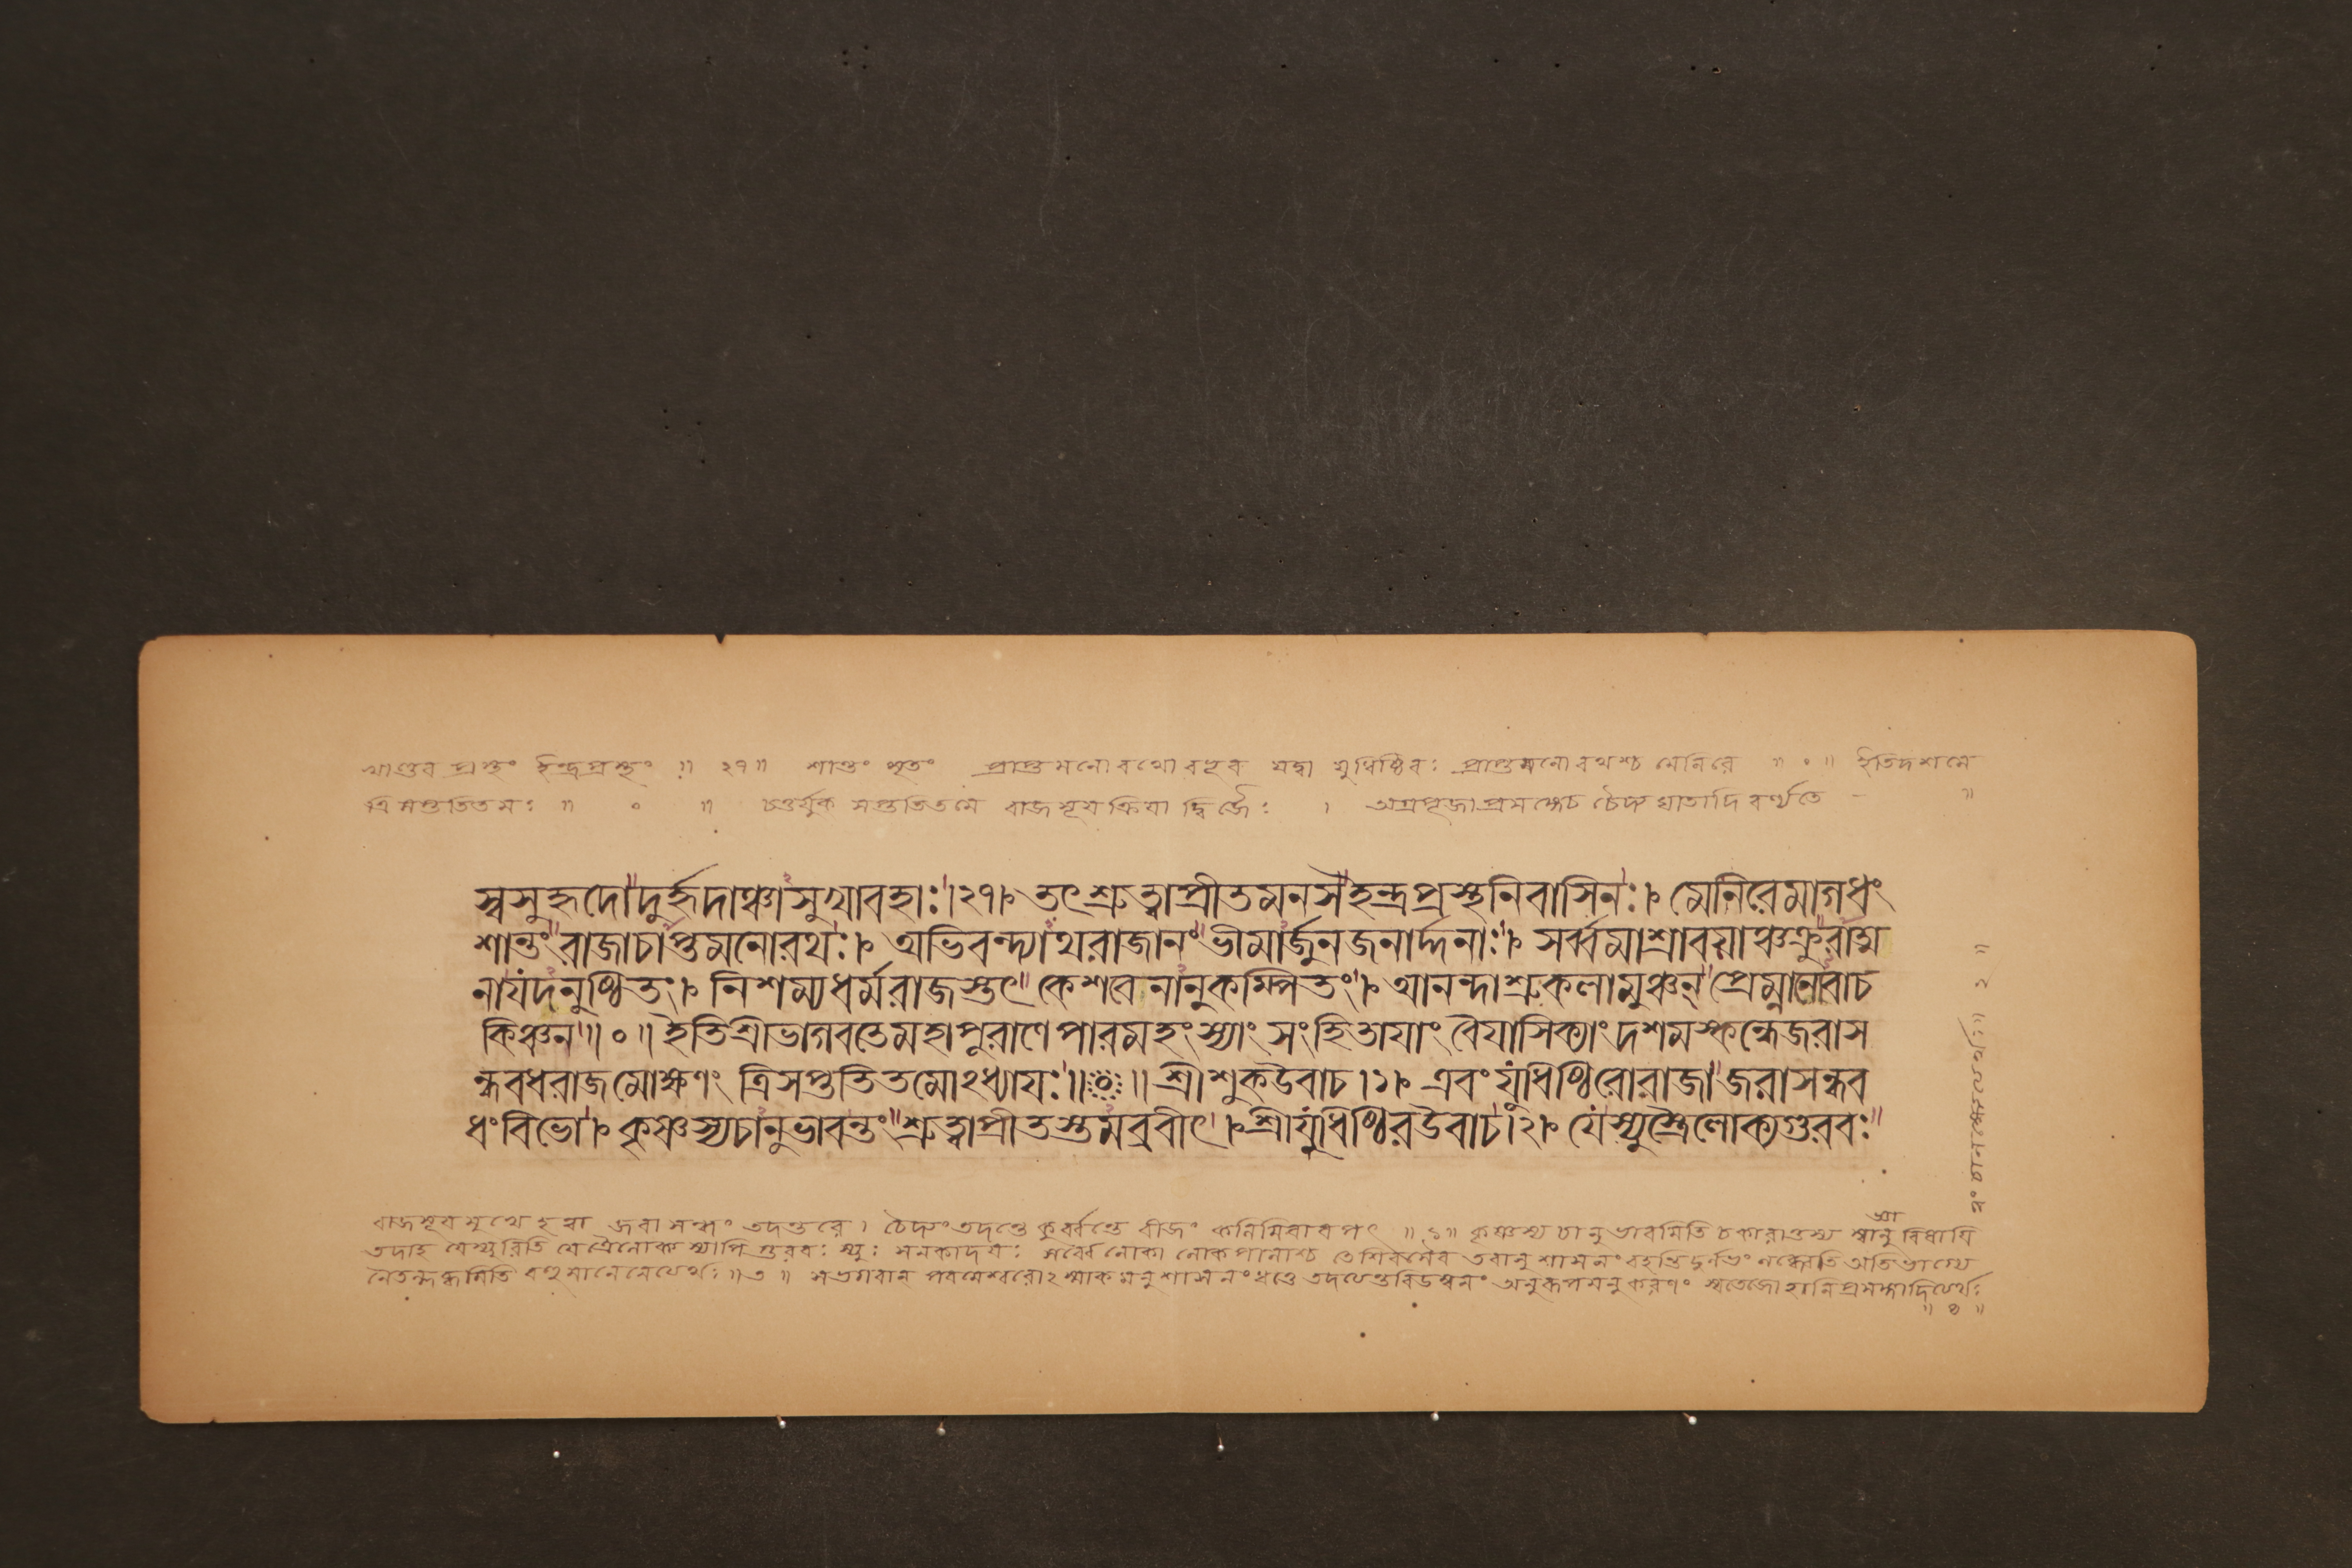 খাণ্ডবপ্রস্থং ইন্দ্রপ্রস্থং ॥ ২৭॥ শান্তং মৃতং প্রাপ্তমনোরথো বভূব যদ্বা যুধিষ্ঠিরঃ প্রাপ্তমনোরথশ্চ মেনিরে ॥ ০ ॥ ইতিদশমে
ত্রিসপ্ততিতমঃ ॥ ০ ॥ চতুর্যুক সপ্ততিতমে রাজসূয়ক্রিয়া দ্বিজৈঃ । অগ্রপূজাপ্রসঙ্গেচ চৈদ্যঘাতাদিবর্ণ্যতে ॥
স্বসুহৃদো দুর্হৃদাঞ্চাসুখাবহাঃ।২৭। তৎশ্রুত্বাপ্রীতমনসইন্দ্রপ্রস্থনিবাসিনঃ। মেনিরেমাগধং
শান্তং রাজাচাপ্তমনোরথঃ। অভিবন্দ্যাথরাজানং ভীমার্জুনজনার্দ্দনাঃ। সর্ব্বমাশ্রাবয়াঞ্চক্রুরাত্ম
নাযদনুষ্ঠিতং। নিশম্যধর্মরাজস্তৎ কেশবেনানুকম্পিতং। আনন্দাশ্রুকলামুঞ্চন্ প্রেম্নানোবাচ
কিঞ্চন॥০॥ইতিশ্রীভাগবতেমহাপুরাণেপারমহংস্যাং সংহিতাযাং বৈযাসিক্যাং দশমস্কন্ধেজরাস
ন্ধবধরাজমোক্ষণং ত্রিসপ্ততিতমোঽধ্যাযঃ॥০॥ শ্রীশুকউবাচ।১। এবং যুধিষ্ঠিরোরাজা জরাসন্ধব
ধংবিভো। কৃষ্ণস্যচানুভাবন্তং শ্রুত্বাপ্রীতস্তমব্রবীৎ।শ্রীযুধিষ্ঠিরউবাচ।২। যেস্যুস্ত্রৈলোক্যগুরবঃ
রাজসূয়মুখে হত্বা জরাসন্ধং তদন্তরে। চৈদ্যং তদন্তে কুর্ব্বন্তে বীজং কলিমিবাবপৎ ॥১॥ কৃষ্ণস্য চানুভাবমিতি চকারাত্তস্য স্বানুবিধায়ি
তদাহ যেস্যুরিতি যে ত্রৈলোক্যস্যাপি গুরবঃ স্যুঃ সনকাদয়ঃ সর্ব্বেলোকা লোকপালাশ্চ তে শিরসৈব তবানুশাসনং বহন্তি দুর্লভং
সভগবান্ পরমেশ্বরোঽস্মাকমনুশাসনং ধত্তে
॥ ৪ ॥
॥ ২ ॥